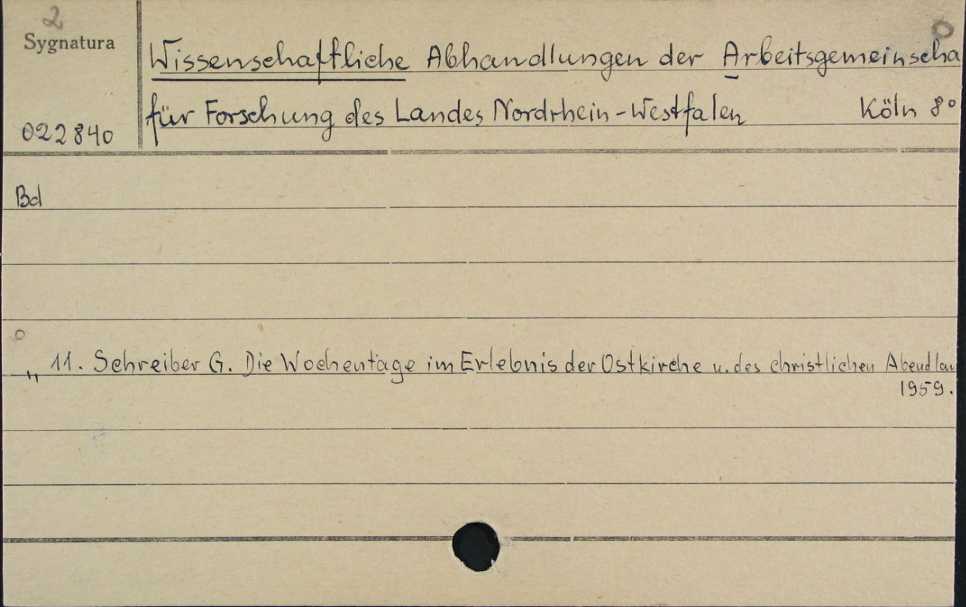 2
Sygnatura
022840
Wissenschaftliche Abhandlungen der Arbeitsgemeinscha
für Forschung des Landes Nordrhein-Westfalen Köln 8°
Bd
„ 11. Schreiber G. Die Wochentage im Erlebnis der Ostkirche u. des christlichen Abendlan
1959.